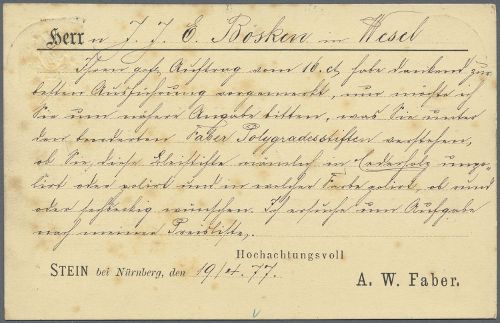 Herrn J. J. E. Bösken in Wesel
Ihren gefl. Auftrag vom 16. ct. habe dankend zur
besten Ausführung vorgemerkt, nur möchte ich
Sie um nähere Angabe bitten, was Sie unter
den Faber Polygradesstiften verstehen,
ob Sie diese Bleistifte nämlich in Cederholz unpo-
lirt oder polirt und in welcher Farbe polirt, ob rund
oder sechseckig wünschen. Ich ersuche um Aufgabe
nach meiner Preisliste.
Hochachtungsvoll
STEIN bei Nürnberg, den 19/4. 77.
A. W. Faber.